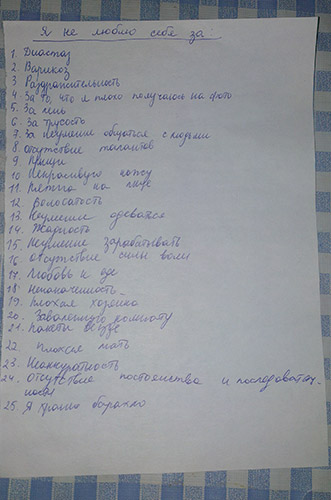 Я не люблю себя за:
1. Диастаз
2. Варикоз
3. Раздражительность
4. За то, что я плохо получаюсь на фото
5. За лень
6. За трусость
7. За неумение общаться с людьми
8. отсутствие талантов
9. Прыщи
10. Некрасивую кожу
11. пятна на лице
12. Волосатость
13. Неумение одеваться
14. Жадность
15. Неумение зарабатывать
16. отсутствие силы воли
17. Любовь к еде
18.
19. плохая хозяйка
20. Заваленную комнату
21. пакеты везде
22. плохая мать
23. Неаккуратность
24. Отсутствие постоянства и последователь-
ности
25. Я храню барахло